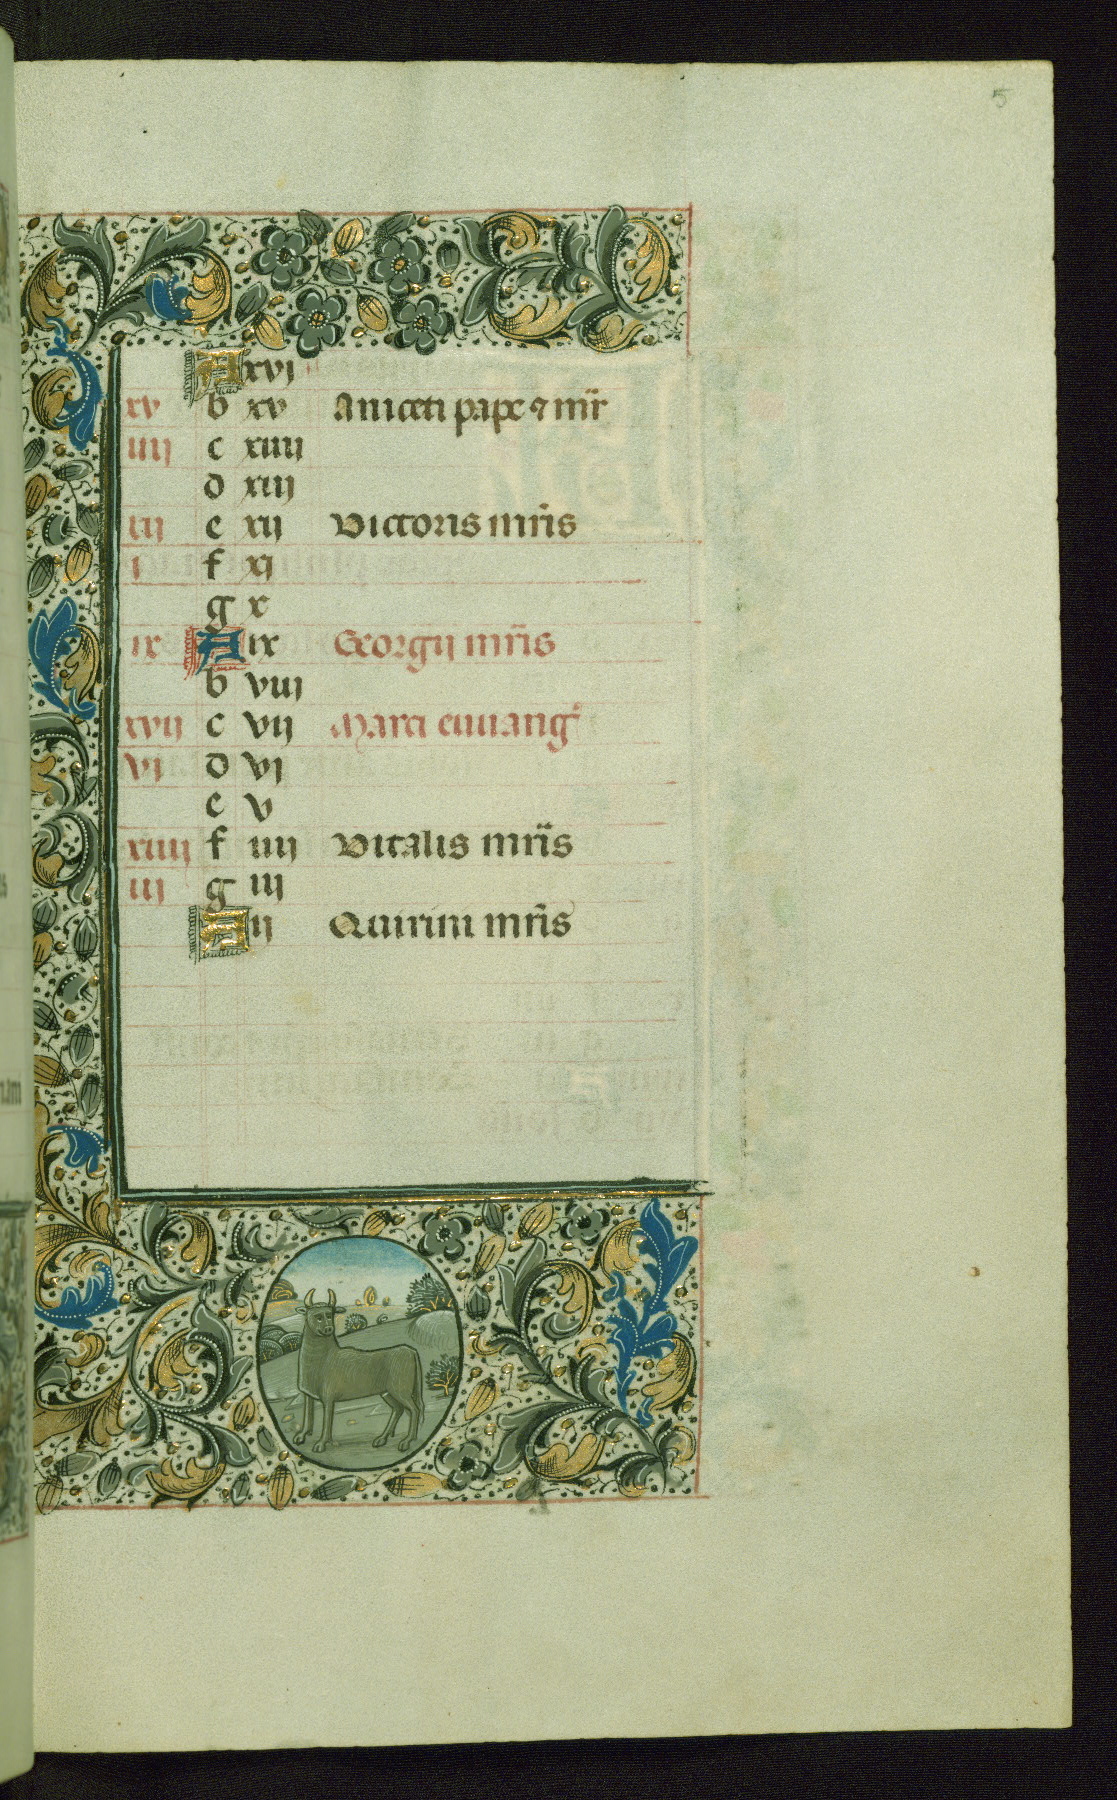 5
A xvj
xv b xv Aniceti pape ⁊ mr̄
iiij c xiiij
d xiij
iij e xij Victoris mr̄is
j f xj
g x
ix A ix Georgij mr̄is
b viij
xvij c vij Marci euuang
vj d vj
e v
xiiij f iiij Vitalis mr̄is
iij g iij
A ij Quirini mr̄is